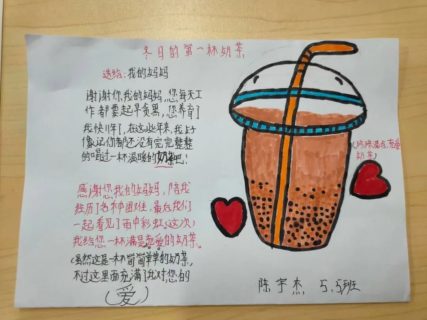 冬日的第一杯奶茶
送给：我的妈妈
谢谢你，我的妈妈，您每天工
作都要起早贪黑，您养育了
我快11年了，在这些年来，我好
像记你都还没有完完整整
的喝过一杯温暖的奶茶吧！
感谢您我的妈妈，陪我
经历了各种困难，最后我们
一起看见了雨中彩虹，这次
我给您一杯满是爱意的奶茶，
虽然这是一杯简简单单的奶茶，
不过这里面充满了我对您的
（爱）
奶茶）
陈宇杰 5.5班